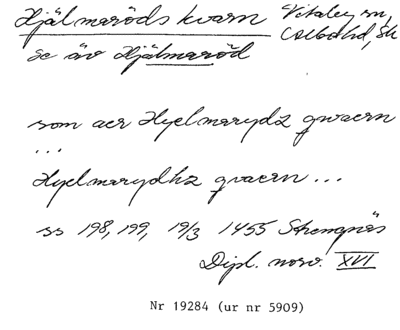 Hjälmaröds kvarn Vitaby sn,
se äv Hjälmaröd Albo hd, Sk
som aer Hyelmarydz qwaern
...
Hyelmarydhz qvaern ...
ss 198, 199, 19/3 1455 Strengnäs
Dipl. nov. XVI
Nr 19284 (ur nr 5909)